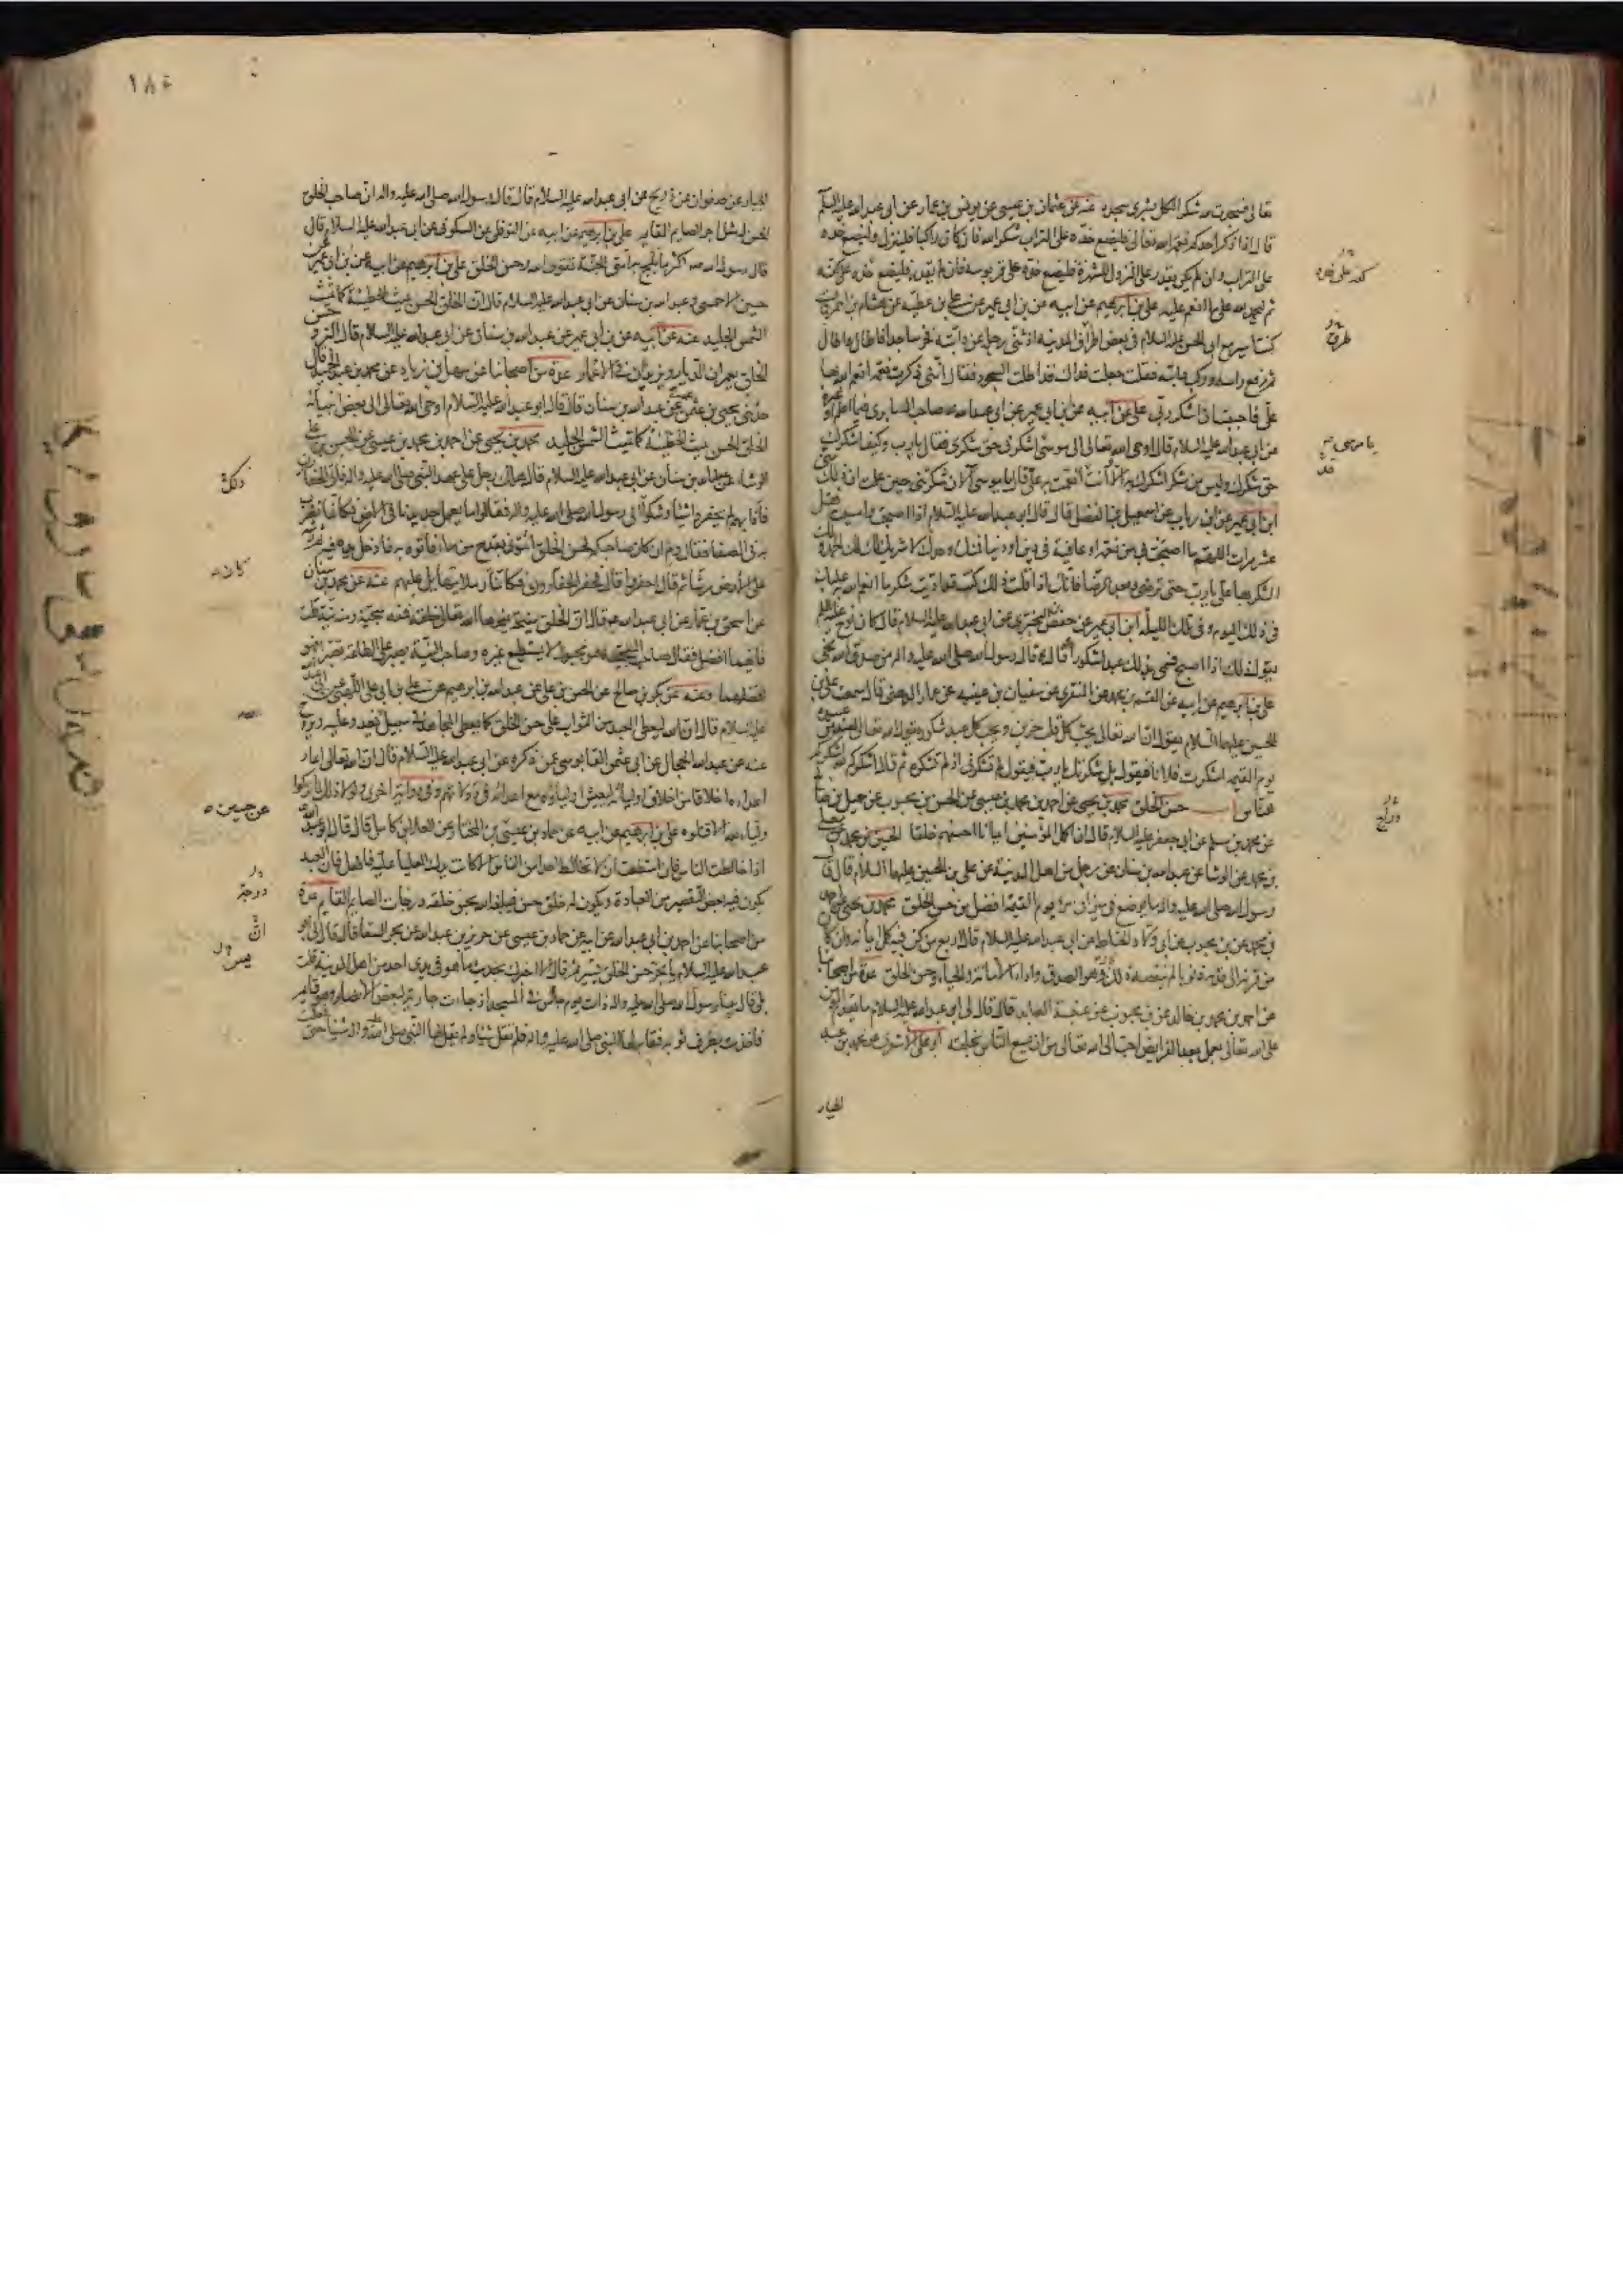 تعالى فسجدت لله شكرا لكل بشرى سجدة عنه عن عثمان بن عيسى عن يونس بن عمار عن ابى عبدالله عليه السلم
قال اذا ذكر احدكم نعمة الله تعالى فليضع خده على التراب شكرا لله فان كان راكبا فلينزل وليضع خده
على التراب وان لم يكن يقدر على النزول للشهرة فليضع خده على قربوسه فان لم يقدر فليضع خده على كفه
ثم ليحمد الله على ما انعم عليه علي بن ابرهيم عن ابيه عن بن ابى عمير عن علي بن عطية عن هشام بن احمر قال
كنت اسير مع ابى الحسن عليه السلام فى بعض اطراف المدينة اذ ثنى رجله عن دابته فخر ساجدا فاطال واطال
ثم رفع راسه وركب دابته فقلت جعلت فداك قد اطلت السجود فقال اننى ذكرت نعمة انعم الله بها
على فاحببت ان اشكر ربى على عن ابيه عن بن ابى عمير عن ابى عبدالله صاحب السابرى فيما اعلم او غيره
عن ابى عبدالله عليه السلام قال اوحى الله تعالى الى موسى اشكرنى حق شكرى فقال يا رب وكيف اشكرك
حق شكرك وليس من شكر اشكرك به الا وانت انعمت به على قال يا موسى الان شكرتنى حين علمت ان ذلك منى
ابن ابى عمير عن ابن رياب عن اسمعيل بن الفضل قال قال ابو عبدالله عليه السلام اذا اصبحت وامسيت فقل
عشر مرات اللهم ما اصبحت بى من نعمة او عافية فى دين او دنيا فمنك وحدك لا شريك لك لك الحمد ولك
الشكر بها على يا رب حتى ترضى وبعد الرضا فانك اذا قلت ذلك كنت قد اديت شكر ما انعم الله عليك
فى ذلك اليوم وفى تلك الليلة ابن ابى عمير عن حفص بن البخترى عن ابى عبدالله عليه السلام قال كان نوح عليه السلم
يقول ذلك اذا اصبح فسمى بذلك عبدا شكورا وقال قال رسول الله صلى الله عليه واله من صدق الله نجى
علي بن ابرهيم عن ابيه عن القسم بن محمد عن المنقرى عن سفيان بن عيينه عن عمار الدهنى قال سمعت على بن
الحسين عليهما السلام يقول ان الله تعالى يحب كل قلب حزين ويحب كل عبد شكور يقول الله تعالى لعبد من عبيده
يوم القيمة اشكرت فلانا فيقول بل شكرتك يا رب فيقول لم تشكرنى اذ لم تشكره ثم قال اشكركم لله اشكركم
للناس حسن الخلق محمد بن يحيى عن احمد بن محمد بن عيسى عن الحسن بن محبوب عن جميل بن صالح
عن محمد بن مسلم عن ابى جعفر عليه السلام قال ان اكمل المؤمنين ايمانا احسنهم خلقا الحسين بن محمد عن معلى
بن محمد عن الوشا عن عبدالله بن سنان عن رجل من اهل المدينة عن على بن الحسين عليهما السلام قال قال
رسول الله صلى الله عليه واله ما يوضع فى ميزان امرئ يوم القيمة افضل من حسن الخلق محمد بن يحيى عن احمد
بن محمد عن بن محبوب عن ابى ولاد الحناط عن ابى عبدالله عليه السلام قال اربع من كن فيه كمل ايمانه وان كان
من قرنه الى قدمه ذنوبا لم ينقصه ذلك وهو الصدق واداء الامانة والحياء وحسن الخلق عدة من اصحابنا
عن احمد بن محمد بن خالد عن بن محبوب عن عنبسة العابد قال قال لى ابو عبدالله عليه السلام ما يقدم المؤمن
على الله تعالى بعمل بعد الفرايض احب الى الله تعالى من ان يسع الناس بخلقه ابو على الاشعرى عن محمد بن عبد
الجبار
طرق
يا موسى
١٨٤
الجبار عن صفوان عن ذريح عن ابى عبدالله عليه السلام قال قال رسول الله صلى الله عليه واله ان صاحب الخلق
الحسن له مثل اجر الصايم القايم علي بن ابرهيم عن ابيه عن النوفلى عن السكونى عن ابى عبدالله عليه السلام قال
قال رسول الله صه اكثر ما تلج به امتى الجنة تقوى الله وحسن الخلق علي بن ابرهيم عن ابيه عن بن ابى عمير عن
حسين الاحمسى وعبدالله بن سنان عن ابى عبدالله عليه السلام قال ان الخلق الحسن يميث الخطيئة كما تميث
الشمس الجليد عنه عن ابيه عن بن ابى عمير عن عبدالله بن سنان عن ابى عبدالله عليه السلام قال البر وحسن
الخلق يعمران الديار ويزيدان فى الاعمار عدة من اصحابنا عن سهل بن زياد عن محمد بن عبد الحميد قال
حدثنى يحيى بن عمرو عن عبدالله بن سنان قال قال ابو عبدالله عليه السلام اوحى الله تعالى الى بعض انبيائه
الخلق الحسن يميث الخطيئة كما تميث الشمس الجليد محمد بن يحيى عن احمد بن محمد بن عيسى عن الحسن بن على
الوشا عن عبدالله بن سنان عن ابى عبدالله عليه السلام قال هلك رجل على عهد النبى صلى الله عليه واله فاتى الحفارين
فاذا بهم لم يحفروا شيئا وشكوا الى رسول الله صلى الله عليه واله فقالوا ما يعمل حديدنا فى الارض فكانما نضرب
به فى الصفا فقال ولم ان كان صاحبكم لحسن الخلق ائتونى بقدح من ماء فاتوه به فادخل يده فيه ثم رشه
على الارض رشا ثم قال احفروا قال فحفر الحفارون فكانما كان رملا يتهايل عليهم عنه عن محمد بن سنان
عن اسحق بن عمار عن ابى عبدالله ع قال ان الخلق منيحة يمنحها الله تعالى خلقه فمنه سجية ومنه نية قلت
فايتهما افضل فقال صاحب السجية هو مجبول لا يستطيع غيره وصاحب النية يصبر على الطاعة تصبرا فهو
افضلهما وعنه عن بكر بن صالح عن الحسن بن على عن عبدالله بن ابرهيم عن على بن ابى على اللهبى عن ابى عبدالله
عليه السلام قال ان الله ليعطى العبد من الثواب على حسن الخلق كما يعطى المجاهد فى سبيل الله يغدو عليه ويروح
عنه عن عبدالله الحجال عن ابى عثمن القابوسى عمن ذكره عن ابى عبدالله عليه السلام قال ان الله تعالى اعار
اعداءه اخلاقا من اخلاق اوليائه ليعيش اولياؤه مع اعدائه فى دولاتهم وفى رواية اخرى ولولا ذلك لما تركوا
وليا لله الا قتلوه علي بن ابرهيم عن ابيه عن حماد بن عيسى بن المختار عن العلا بن كامل قال قال ابو عبدالله
اذا خالطت الناس فان استطعت ان لا تخالط احدا من الناس الا كانت يدك العليا عليه فافعل فان العبد
يكون فيه بعض التقصير من العبادة ويكون له خلق حسن فيبلغه الله بحسن خلقه درجات الصايم القايم عدة
من اصحابنا عن احمد بن ابى عبدالله عن ابيه عن حماد بن عيسى عن حريز بن عبدالله عن بحر السقا قال قال لى ابو
عبدالله عليه السلام يا بحر حسن الخلق يسر ثم قال الا اخبرك بحديث ما هو فى يدى احد من اهل المدينة قلت
بلى قال بينا رسول الله صلى الله عليه واله ذات يوم جالس فى المسجد اذ جاءت جارية لبعض الانصار وهو قايم
فاخذت بطرف ثوبه فقام لها النبى صلى الله عليه واله فلم تقل شيئا ولم يقل لها النبى صلى الله عليه واله شيئا حتى فعلت
ذلك
كان
عن حسين
درجة
ان
يسر